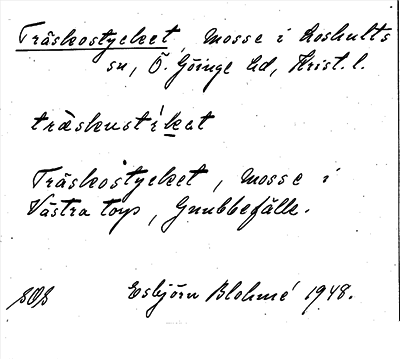 Träskostycket, mosse i Loshults
sn, Ö. Göinge hd, Krist. l.
träskustikat
Träskostycket, mosse i
Västra torp, Gnubbefälle.
Esbjörn Blohmé 1948.